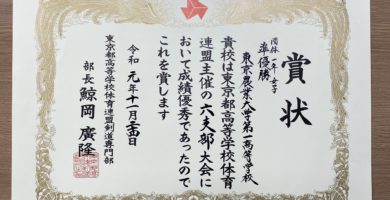 賞状
団体 一年 女子
準優勝
東京農業大学第一高等学校
貴校は東京都高等学校体育
連盟主催の六支部大会に
おいて成績優秀であったので
これを賞します
令和元年十一月二十四日
東京都高等学校体育連盟剣道専門部
部長 鯨岡廣隆